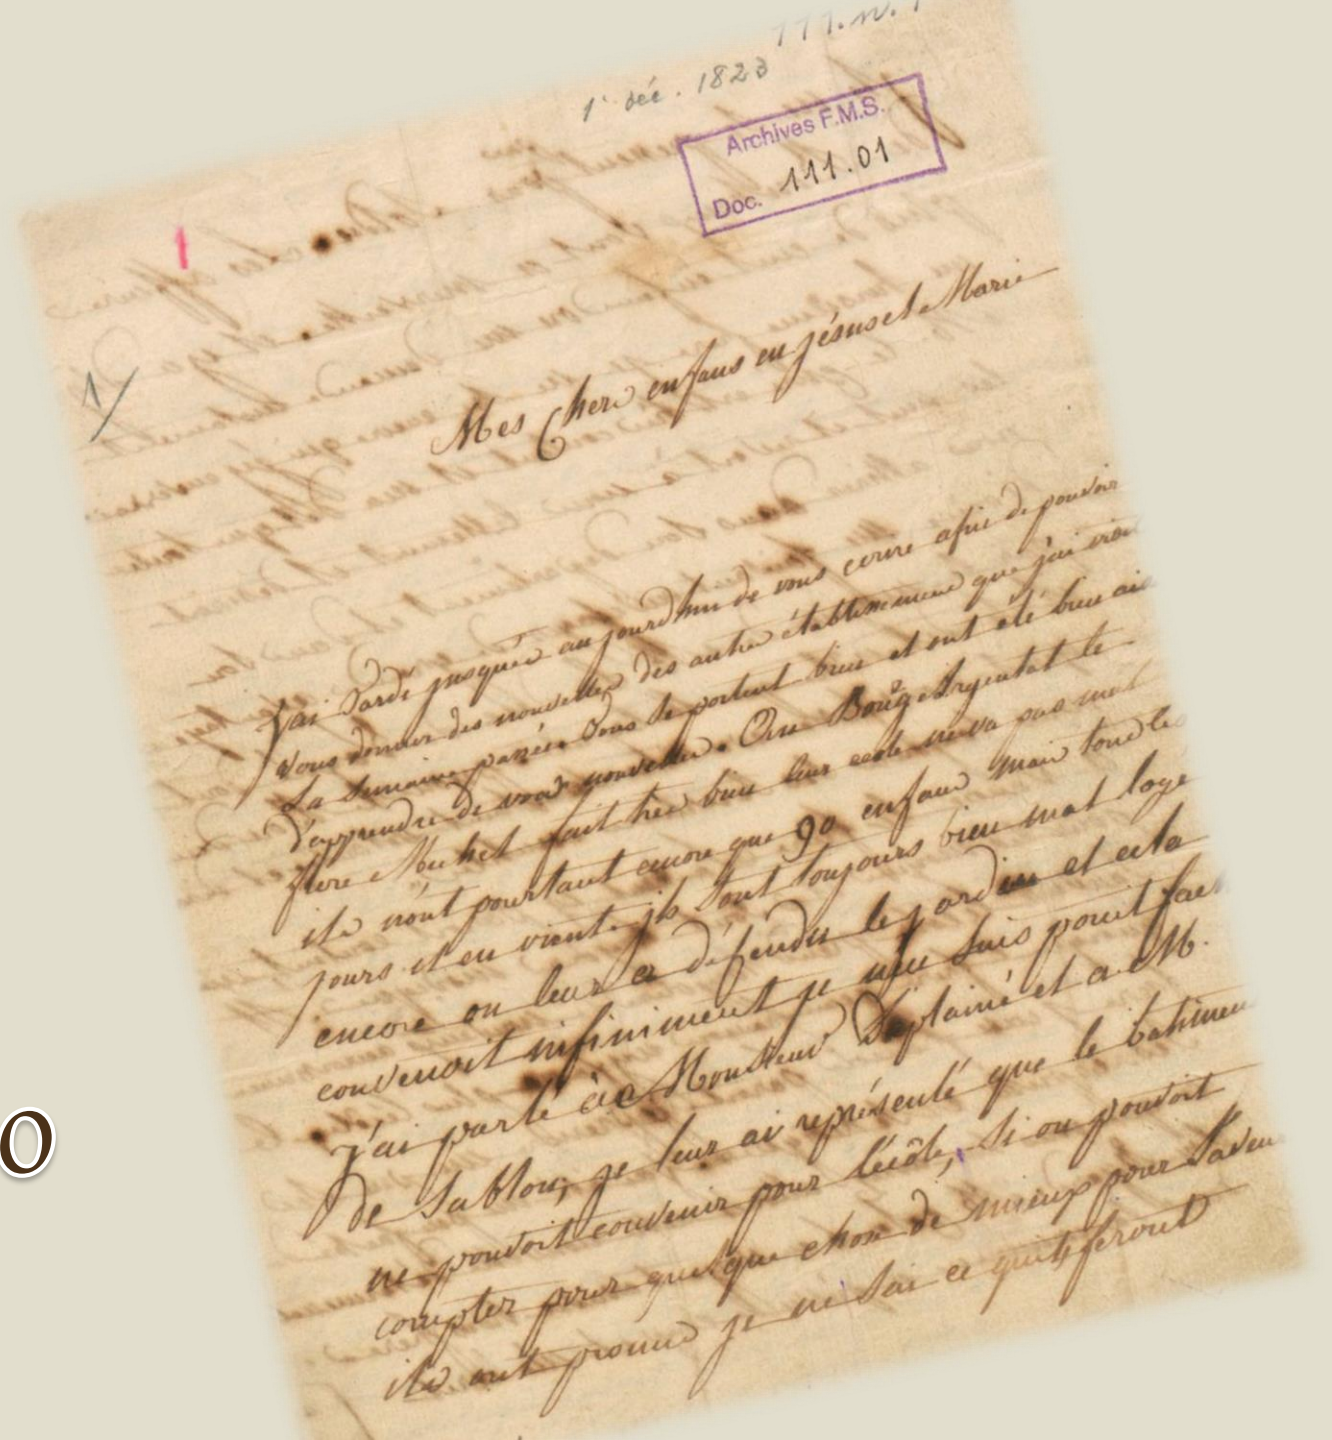 111.
1 déc. 1823
Archives F.M.S.
Doc. 111.01
1
1/
Mes Chers enfans en jésus et Marie
J'ai tardé jusques au jourdhui de vous ecrire afin de pouvoir
vous donner des nouvelles des autre établissemens que j'ai
La semaine passée. tous se portent bien et ont eté bien
d'apprendre de vos nouvelles. Au Bourg Argental le
frere Michel fait tres bien leur ecole ne va pas mal
ils n'ont pourtant encore que 90 enfans mais tous les
jours il en vient. ils sont toujours bien mal logé
encore on leur a défendu le jardin et cela
convenoit infiniment je
j'ai parlé à Monsieur Déplainé et a M.
De Sablon, je leur ai représenté que le batimen
ne pouvoit convenir pour l'école, si on pouvoit
compter pour quelque chose de mieux pour
ils ont promis je ne sai ce qu'ils feront
O